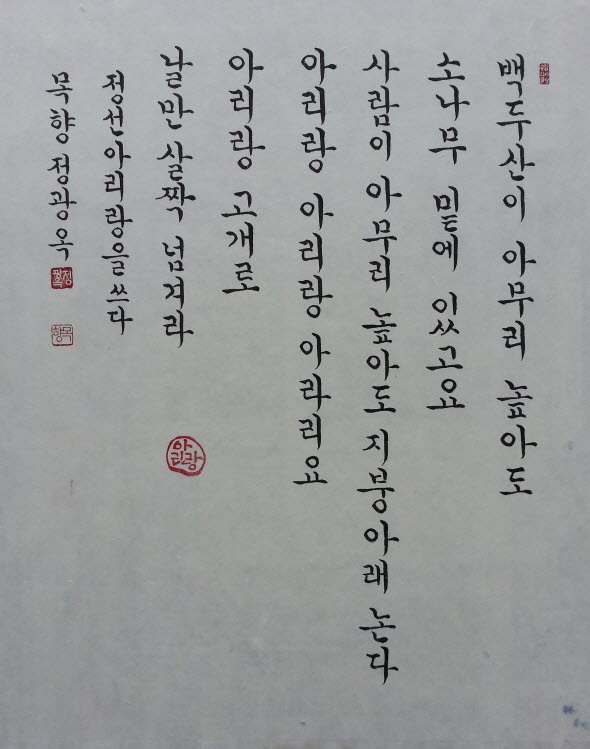 백두산이 아무리 높아도
소나무 밑에 있고요
사람이 아무리 높아도 지붕아래 논다
아리랑 아리랑 아라리요
아리랑 고개로
날만 살짝 넘겨라
정선아리랑을 쓰다
목향 정광옥
정광옥
목향
아리랑